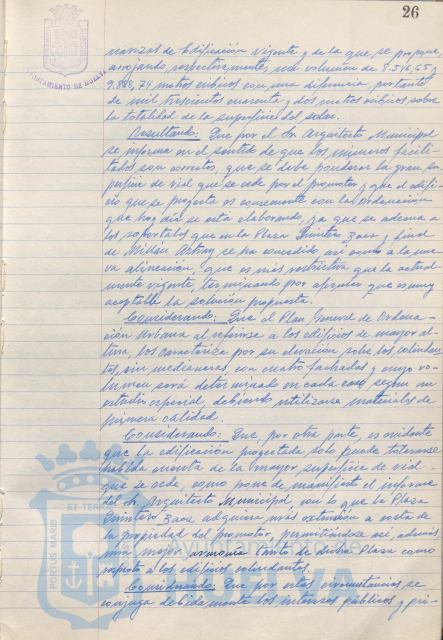 26
AYUNTAMIENTO DE HUELVA
nanzas de Edificación vigente y de la que se propugna,
arrojando, respectivamente, un volumen de 8.546,65 y
9.888,74 metros cúbicos con una diferencia, por tanto
de mil trescientos cuarenta y dos metros cúbicos sobre
la totalidad de la superficie del solar.
Resultando: Que por el Sr. Arquitecto Municipal
se informa en el sentido de que los números facili-
tados son correctos, que se debe ponderar la gran su-
perficie de vial que se cede por el promotor y que el edifi-
cio que se proyecta es consecuente con la Ordenación
que hoy día se está elaborando, ya que se adecua a
los soportales que en la Plaza Quintero Baez y final
de Millán Astray se ha concedido así como a la nue-
va alineación, que es más restrictiva que la actual
mente vigente, terminando por afirmar que es muy
aceptable la solución propuesta.
Considerando: Que el Plan General de Ordena-
ción Urbana al referirse a los edificios de mayor al-
tura, los caracteriza por su elevación sobre los colindan-
tes, sin medianeras, con cuatro fachadas y cuyo vo-
lumen será determinado en cada caso según un
estudio especial, debiendo utilizarse materiales de
primera calidad.
Considerando: Que, por otra parte, es evidente
que la edificación proyectada solo puede tolerarse
habida cuenta de la mayor superficie de vial
que se cede, como pone de manifiesto el informe
del Sr. Arquitecto Municipal con lo que la Plaza
Quintero Baez adquiere más extensión a costa de
la propiedad del promotor, permitiéndose así, además,
una mejor armonía tanto de dicha Plaza como
respecto a los edificios colindantes.
Considerando: Que por estas circunstancias, se
conjuga debidamente los intereses públicos y pri-
PORTUS MARIS
ET TERR
HUELVA